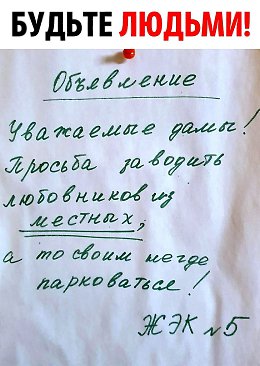 БУДЬТЕ ЛЮДЬМИ!
Объявление
Уважаемые дамы!
Просьба заводить
любовников из
местных,
а то своим негде
парковаться!
ЖЭК №5